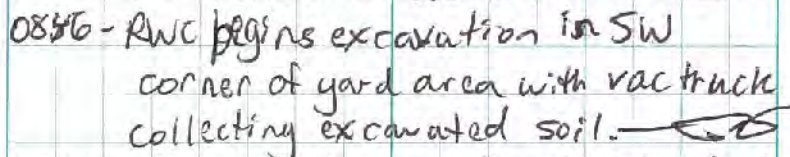 0846 - RWC begins excavation in SW
corner of yard area with vac truck
collecting excavated soil.